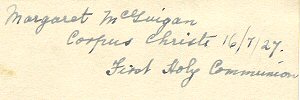 Margaret McGuigan
Corpus Christi 16/7/27.
First Holy Communion